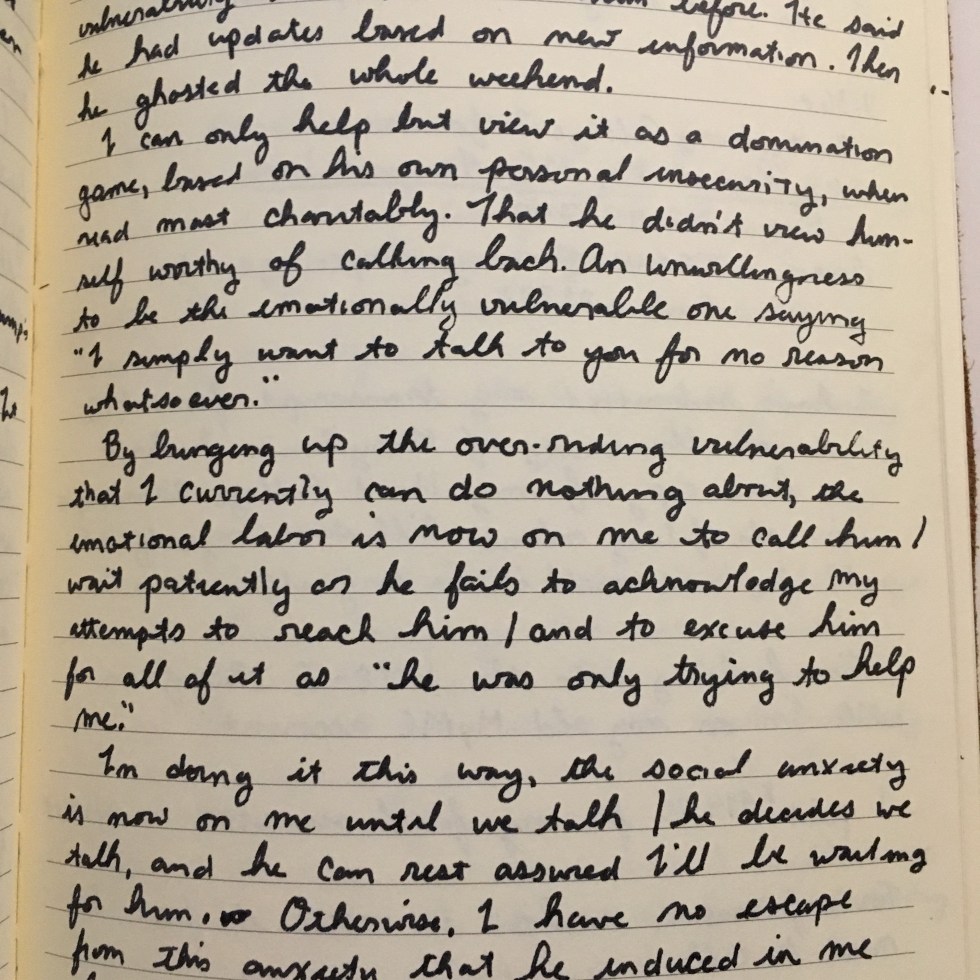 vulnerability before. He said
he had updates based on new information. Then
he ghosted the whole weekend.
I can only help but view it as a domination
game, based on his own personal insecurity, when
read most charitably. That he didn't view him-
self worthy of calling back. An unwillingness
to be the emotionally vulnerable one saying
"I simply want to talk to you for no reason
whatsoever."
By bringing up the over-riding vulnerability
that I currently can do nothing about, the
emotional labor is now on me to call him /
wait patiently as he fails to acknowledge my
attempts to reach him / and to excuse him
for all of it as "he was only trying to help
me."
In doing it this way, the social anxiety
is now on me until we talk / he decides we
talk, and he can rest assured I'll be waiting
for him. Otherwise, I have no escape
from this anxiety that he induced in me